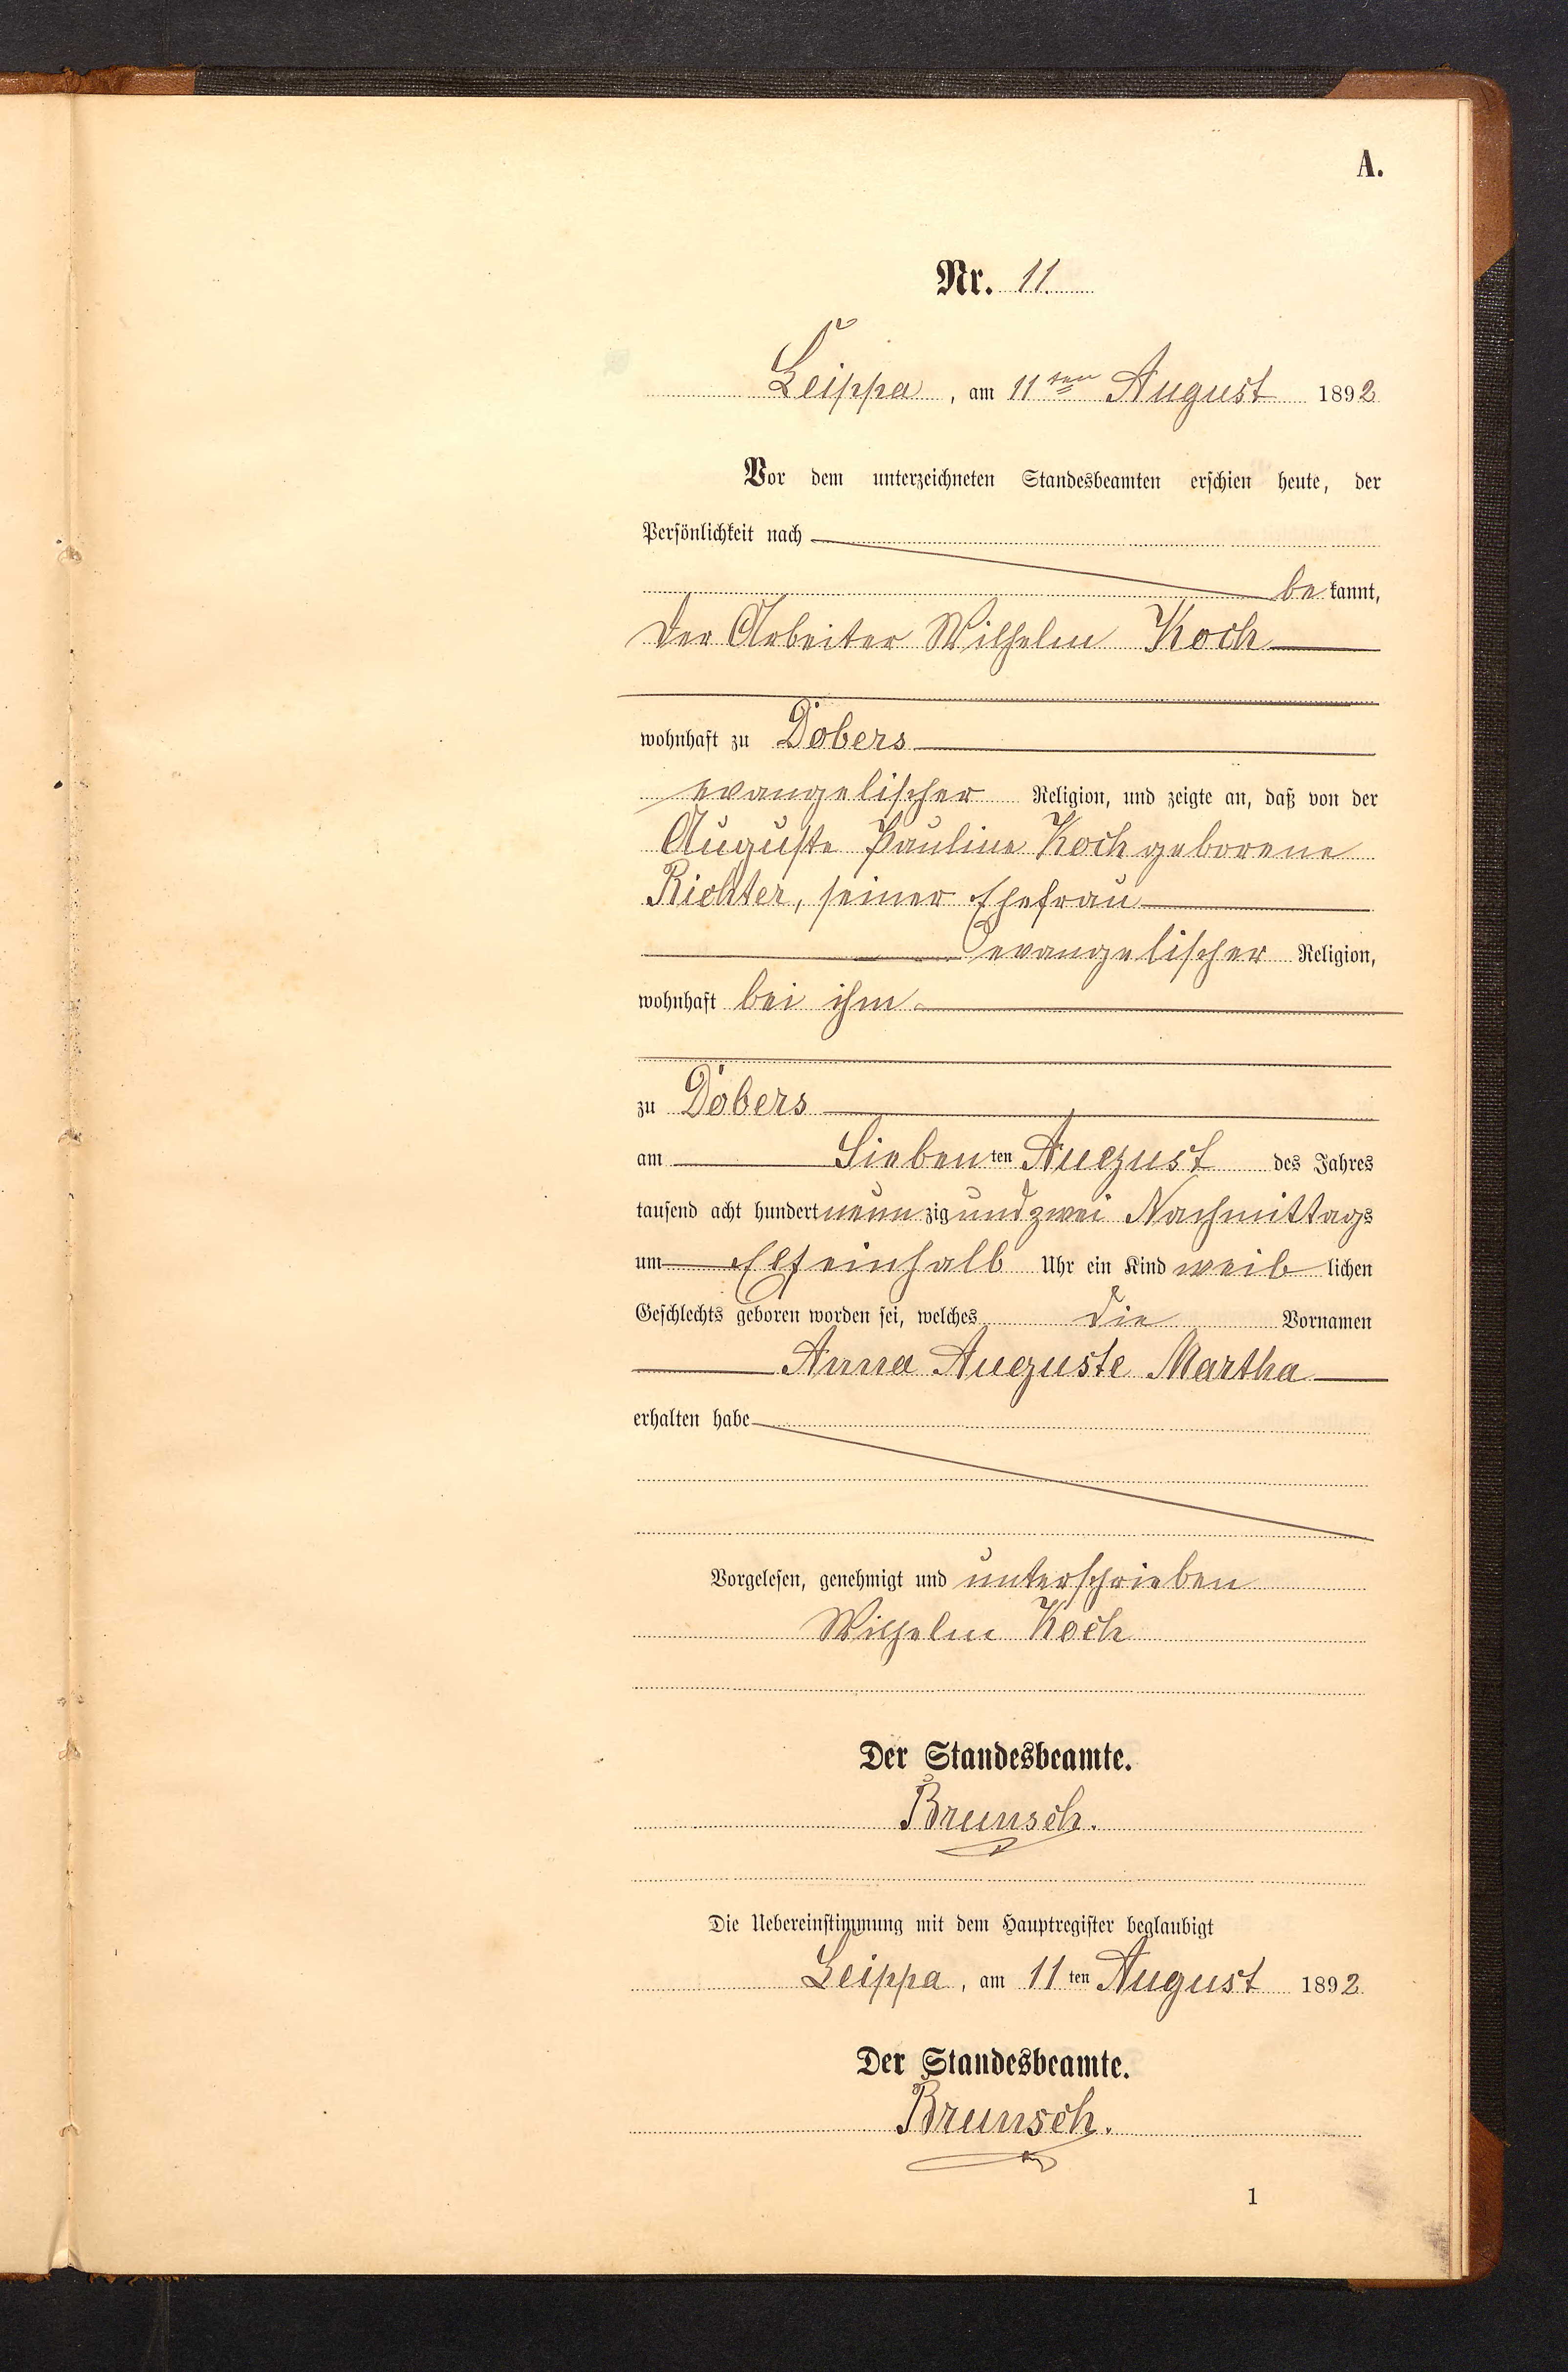 A.
Nr. 11.
Leippa, am 11ten August 1892
Vor dem unterzeichneten Standesbeamten erschien heute, der
Persönlichkeit nach
be kannt,
der Arbeiter Wilhelm Koch
wohnhaft zu Dobers
evangelischer Religion, und zeigte an, daß von der
Auguste Pauline Koch geborene
Richter, seiner Ehefrau
evangelischer Religion,
wohnhaft bei ihm
zu Dobers
am Sieben ten August des Jahres
tausend acht hundert neun zig und zwei Nachmittags
um Elfeinhalb Uhr ein Kind weib lichen
Geschlechts geboren worden sei, welches die Vornamen
Anna Auguste Martha
erhalten habe
Vorgelesen, genehmigt und unterschrieben
Wilhelm Koch
Der Standesbeamte.
Brunsch.
Die Uebereinstimmung mit dem Hauptregister beglaubigt
Leippa, am 11 ten August 1892.
Der Standesbeamte.
Brunsch.
1